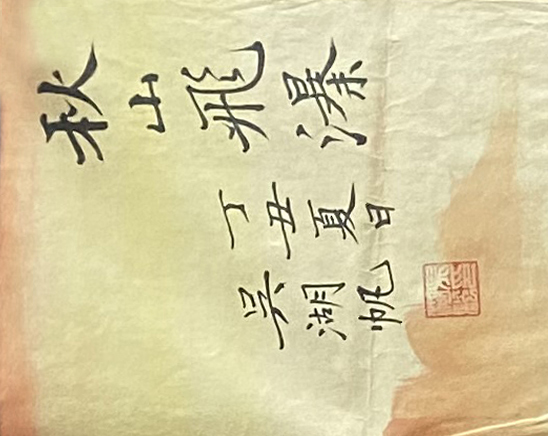 秋山飛瀑
丁丑夏日
吳湖帆